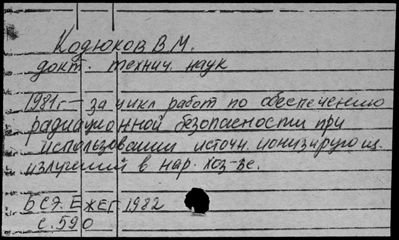 Кодюков В.М.
докт. технич. наук
1981г – за цикл работ по обеспечению
радиационной безопасности при
использовании источн. ионизирующ.
излучений в нар. хоз-ве.
БСЭ. Ежег 1982
с. 590